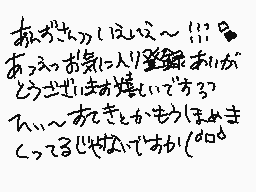 あんずさんっっ いえいえ〜 !!!
あっえっお気に入り登録ありが
とうございます嬉しいですっっ
てぃぃ〜すてきとかもうほめま
くってるじゃないですか(